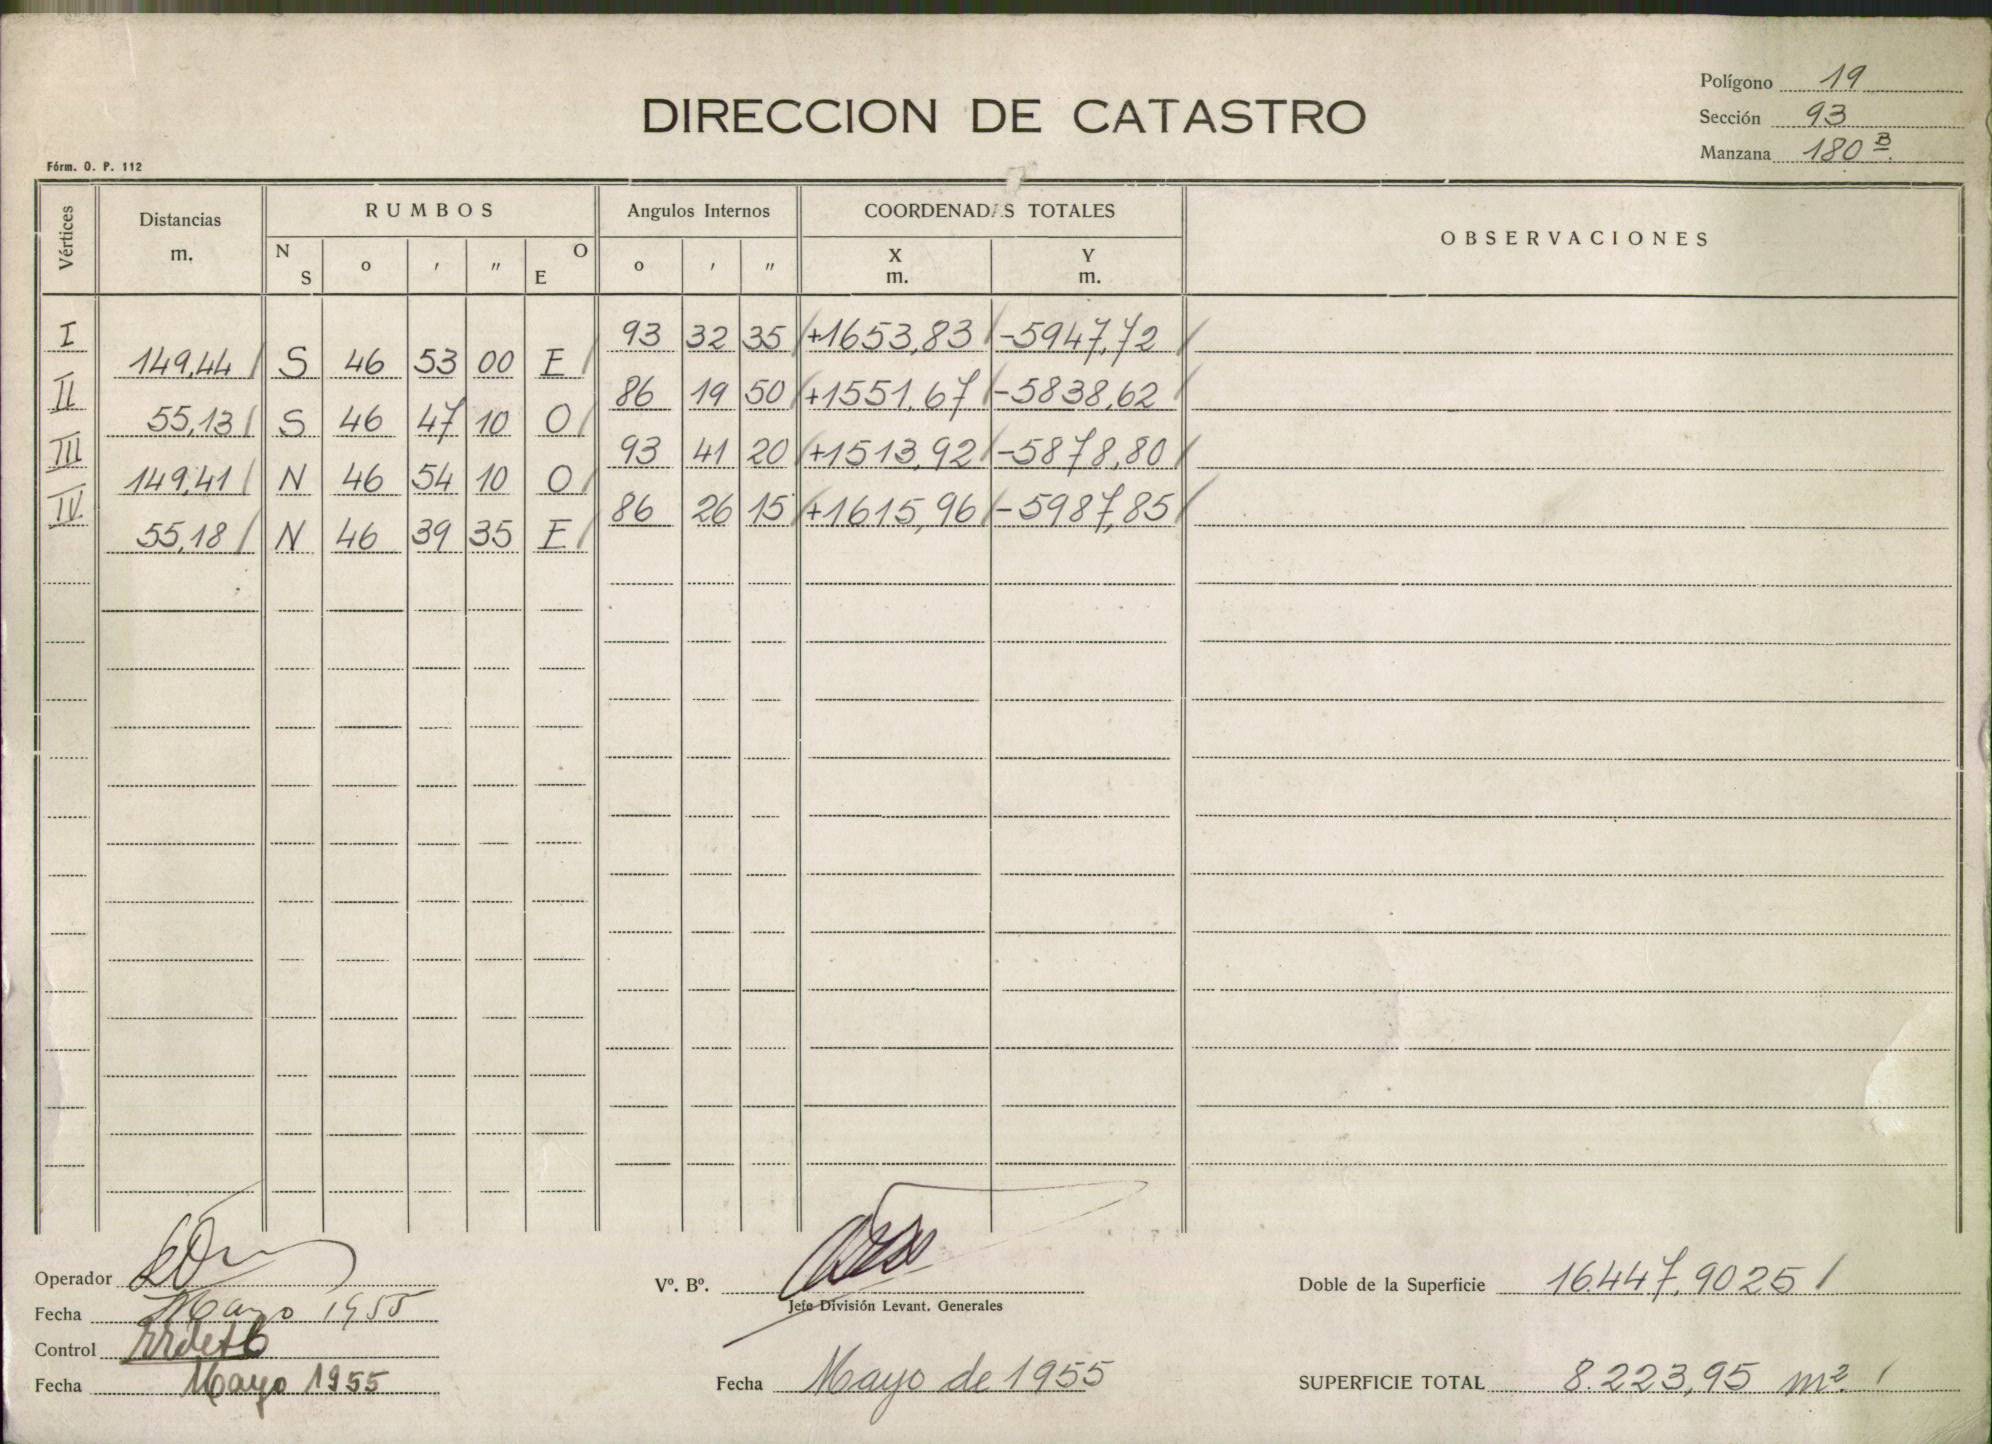 Polígono 19
DIRECCION DE CATASTRO
Sección 93
Manzana 180 B.
Fórm. O. P. 112
Vértices Distancias m. RUMBOS Angulos Internos COORDENADAS TOTALES OBSERVACIONES
N S o ' " O E o ' " X m. Y m.
I 93 32 35 +1653,83 -5947,72
149,44 S 46 53 00 E
II 86 19 50 +1551,67 -5838,62
55,13 S 46 47 10 O
III 93 41 20 +1513,92 -5878,80
149,41 N 46 54 10 O
IV 86 26 15 +1615,96 -5987,85
55,18 N 46 39 35 E
Operador Vº. Bº. Doble de la Superficie 16.447,9025
Jefe División Levant. Generales
Fecha Mayo 1955
Control
Fecha Mayo 1955 Fecha Mayo de 1955 SUPERFICIE TOTAL 8.223,95 m².